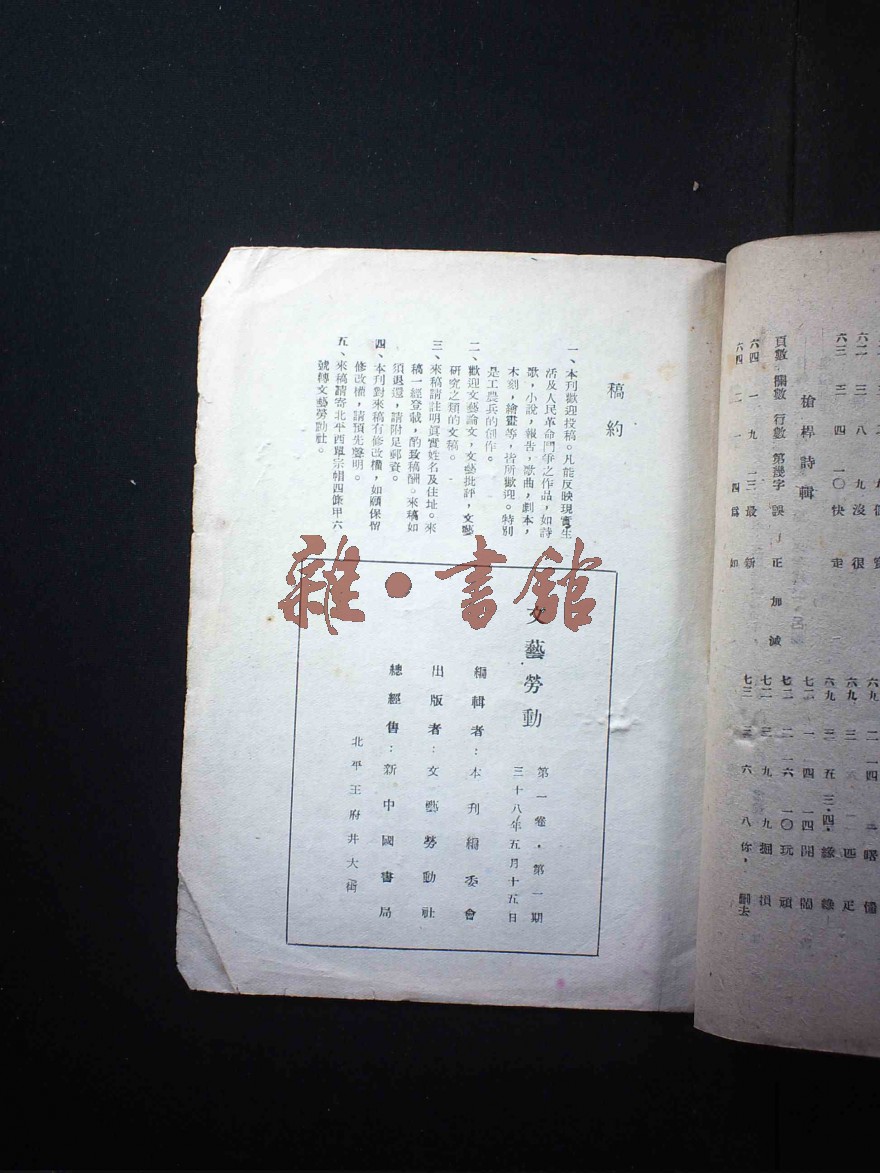 稿約
一、本刊歡迎投稿。凡能反映現實生
活及人民革命鬥爭之作品，如詩
歌，小說，報告，歌曲，劇本，
木刻，繪畫等，皆所歡迎。特別
是工農兵的創作。
二、歡迎文藝論文，文藝批評，文藝
研究之類的文稿。
三、來稿請註明眞實姓名及住址。來
稿一經登載，酌致稿酬。來稿如
須退還，請附足郵資。
四、本刊對來稿有修改權，如願保留
修改權，請預先聲明。
五、來稿請寄北平西單宗帽四條甲六
號轉文藝勞動社。
文藝勞動
第一卷．第一期
三十八年五月十五日
編輯者：本刊編委會
出版者：文藝勞動社
總經售：新中國書局
北平王府井大街
雜•書館
槍桿詩輯
頁數 欄數 行數 第幾字 誤 正 加 滅
六四 一 九 一三 最 新
六四 二 一 四 爲 如
七一 一 四 一四 開 閙
七二 二 一六 一〇 玩 頑
七二 三 九 九 掘 損
七三 三 六 八 你， 刪去